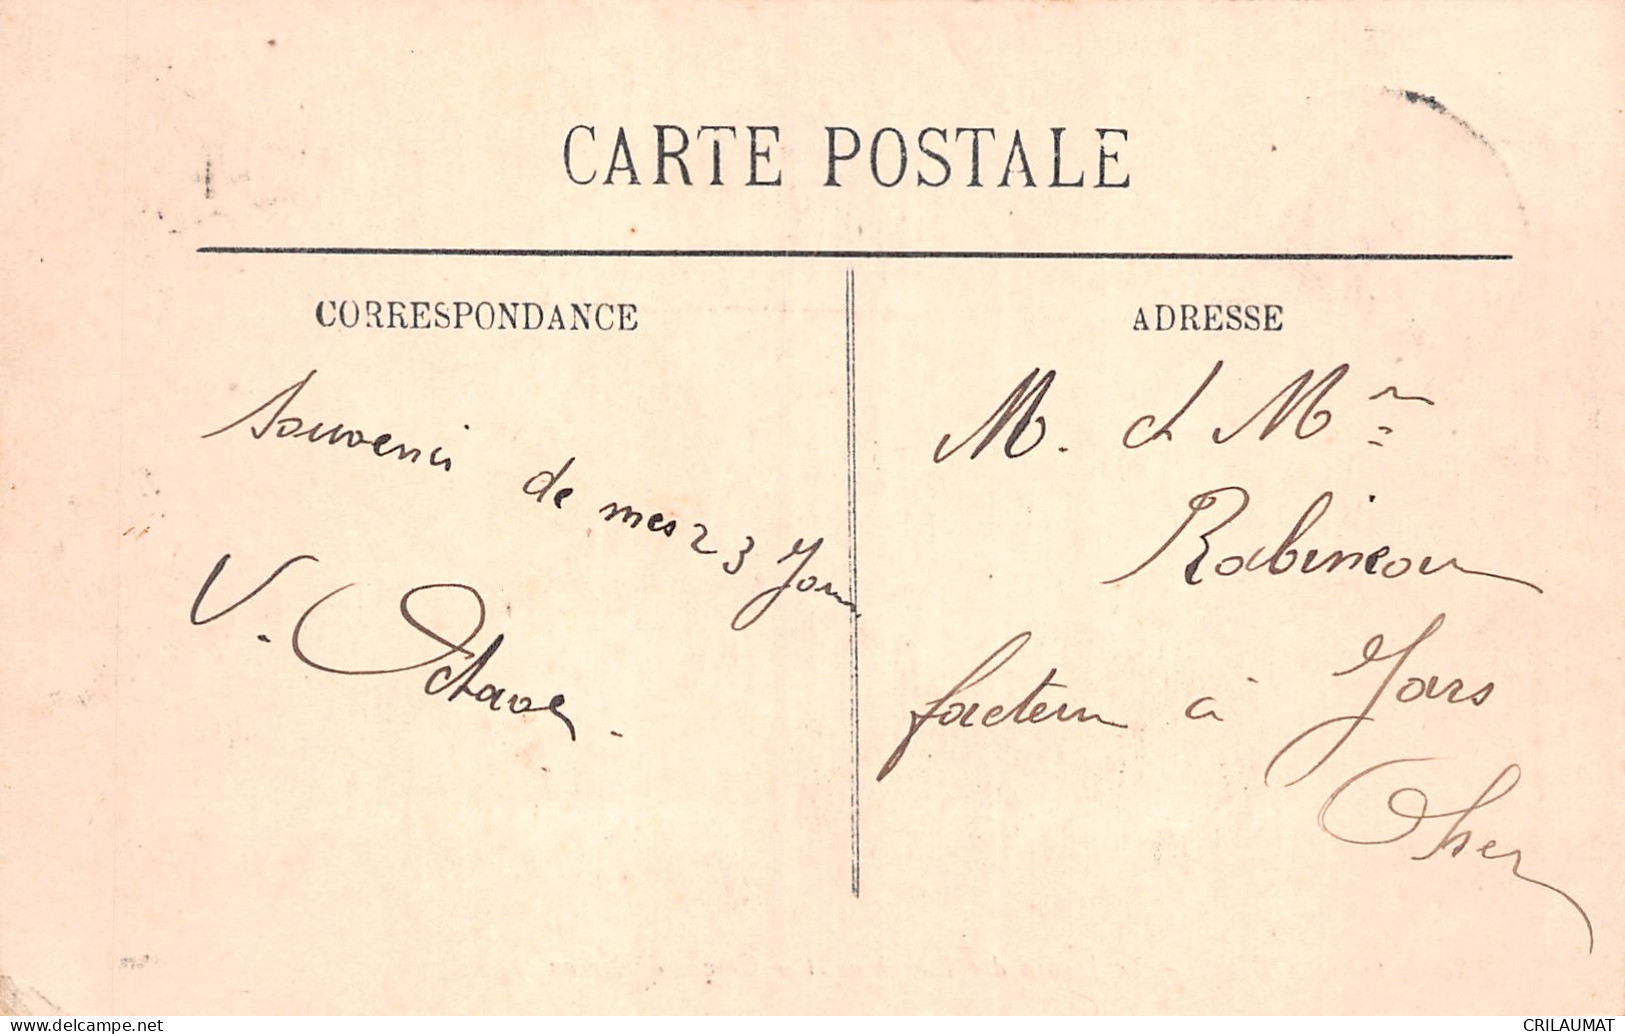 CARTE POSTALE
CORRESPONDANCE
Souvenir de mes 23 Jours
V. Octave.
ADRESSE
M. et Mme
Robineau
facteur à Jars
Cher
www.delcampe.net
CRILAUMAT